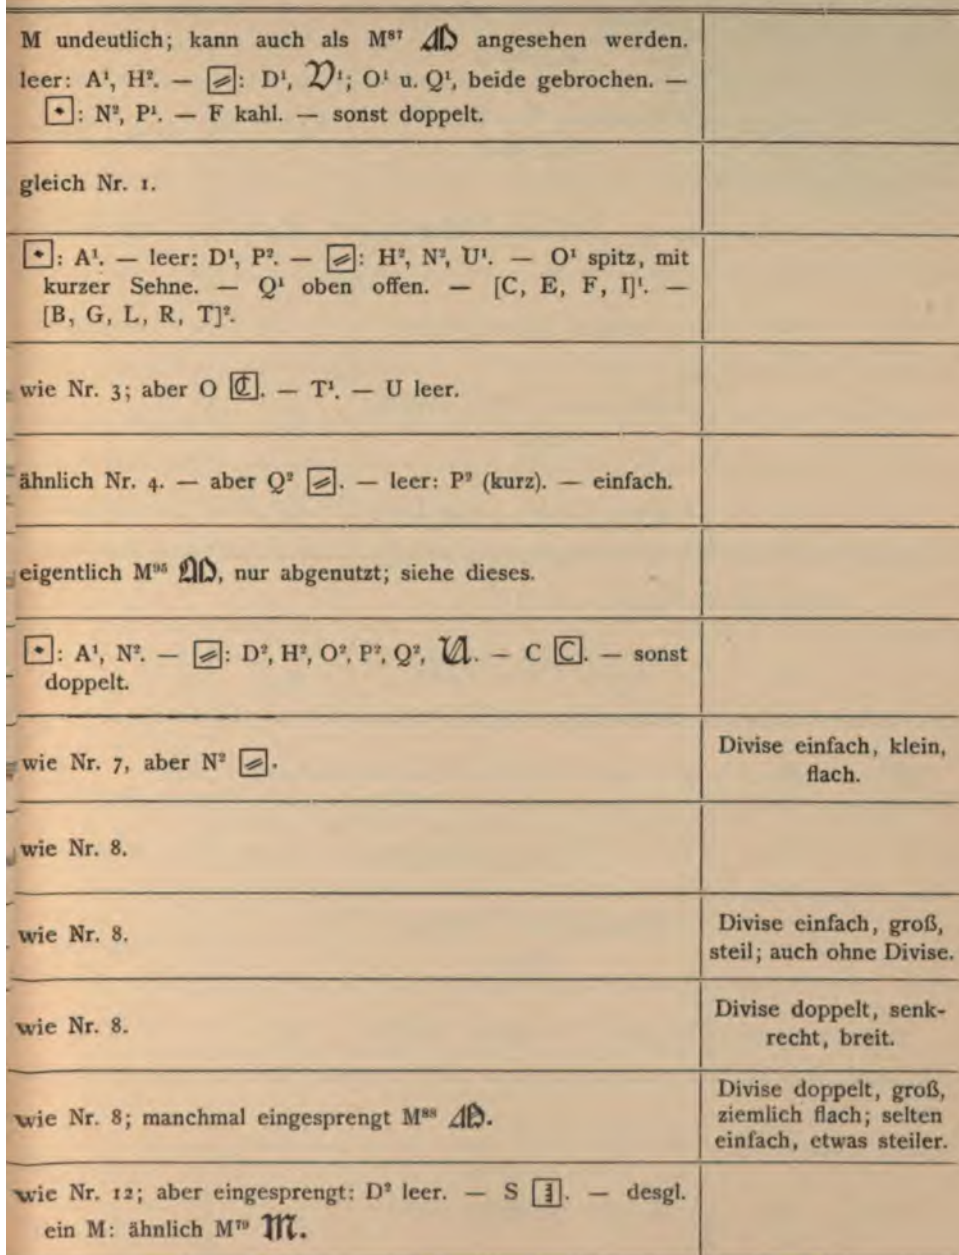 M undeutlich; kann auch als M⁸⁷ angesehen werden.
leer: A¹, H². — : D¹, 𝔇¹; O¹ u. Q¹, beide gebrochen. —
: N², P¹. — F kahl. — sonst doppelt.
gleich Nr. 1.
: A¹. — leer: D¹, P². — : H², N², U¹. — O¹ spitz, mit
kurzer Sehne. — Q¹ oben offen. — [C, E, F, I]¹. —
[B, G, L, R, T]².
wie Nr. 3; aber O ℭ. — T¹. — U leer.
ähnlich Nr. 4. — aber Q² . — leer: P² (kurz). — einfach.
eigentlich M⁹⁵ , nur abgenutzt; siehe dieses.
: A¹, N². — : D², H², O², P², Q², 𝔘. — C C. — sonst
doppelt.
wie Nr. 7, aber N² .
Divise einfach, klein,
flach.
wie Nr. 8.
wie Nr. 8.
Divise einfach, groß,
steil; auch ohne Divise.
wie Nr. 8.
Divise doppelt, senk-
recht, breit.
wie Nr. 8; manchmal eingesprengt M⁸⁸ .
Divise doppelt, groß,
ziemlich flach; selten
einfach, etwas steiler.
wie Nr. 12; aber eingesprengt: D² leer. — S . — desgl.
ein M: ähnlich M⁷⁹ 𝔐.